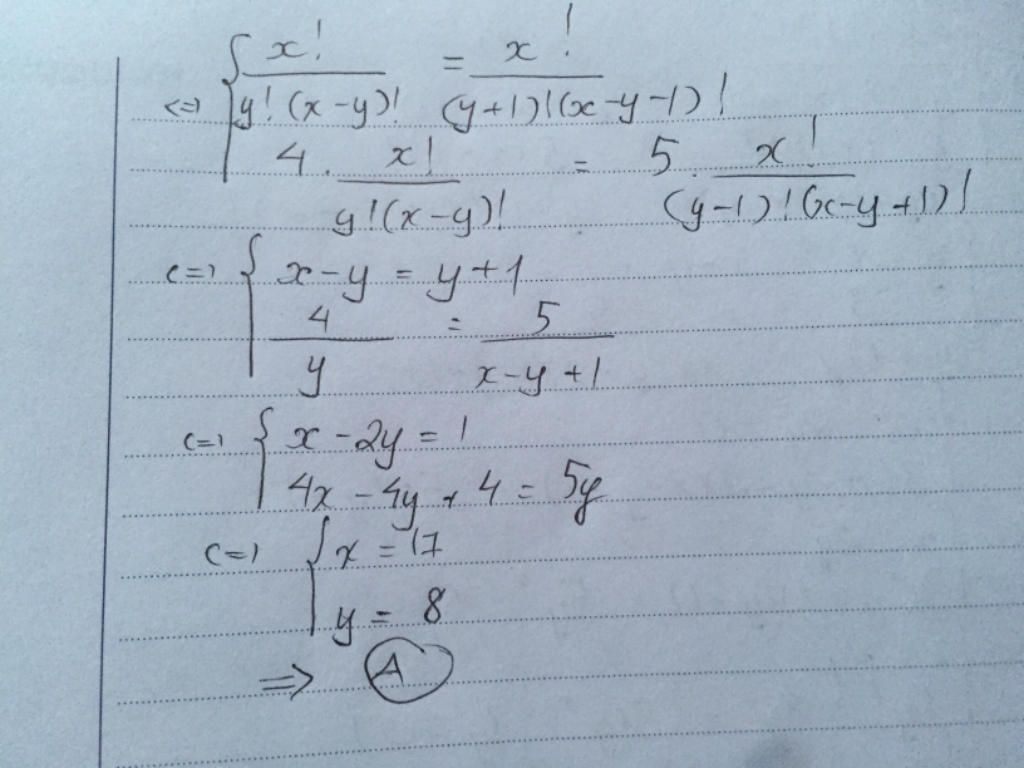 <=> { x! / (y!(x-y)!) = x! / ((y+1)!(x-y-1)!)
4 . x! / (y!(x-y)!) = 5 . x! / ((y-1)!(x-y+1)!)
<=> { x-y = y+1
4 / y = 5 / (x-y+1)
<=> { x - 2y = 1
4x - 4y + 4 = 5y
<=> { x = 17
y = 8
=> A